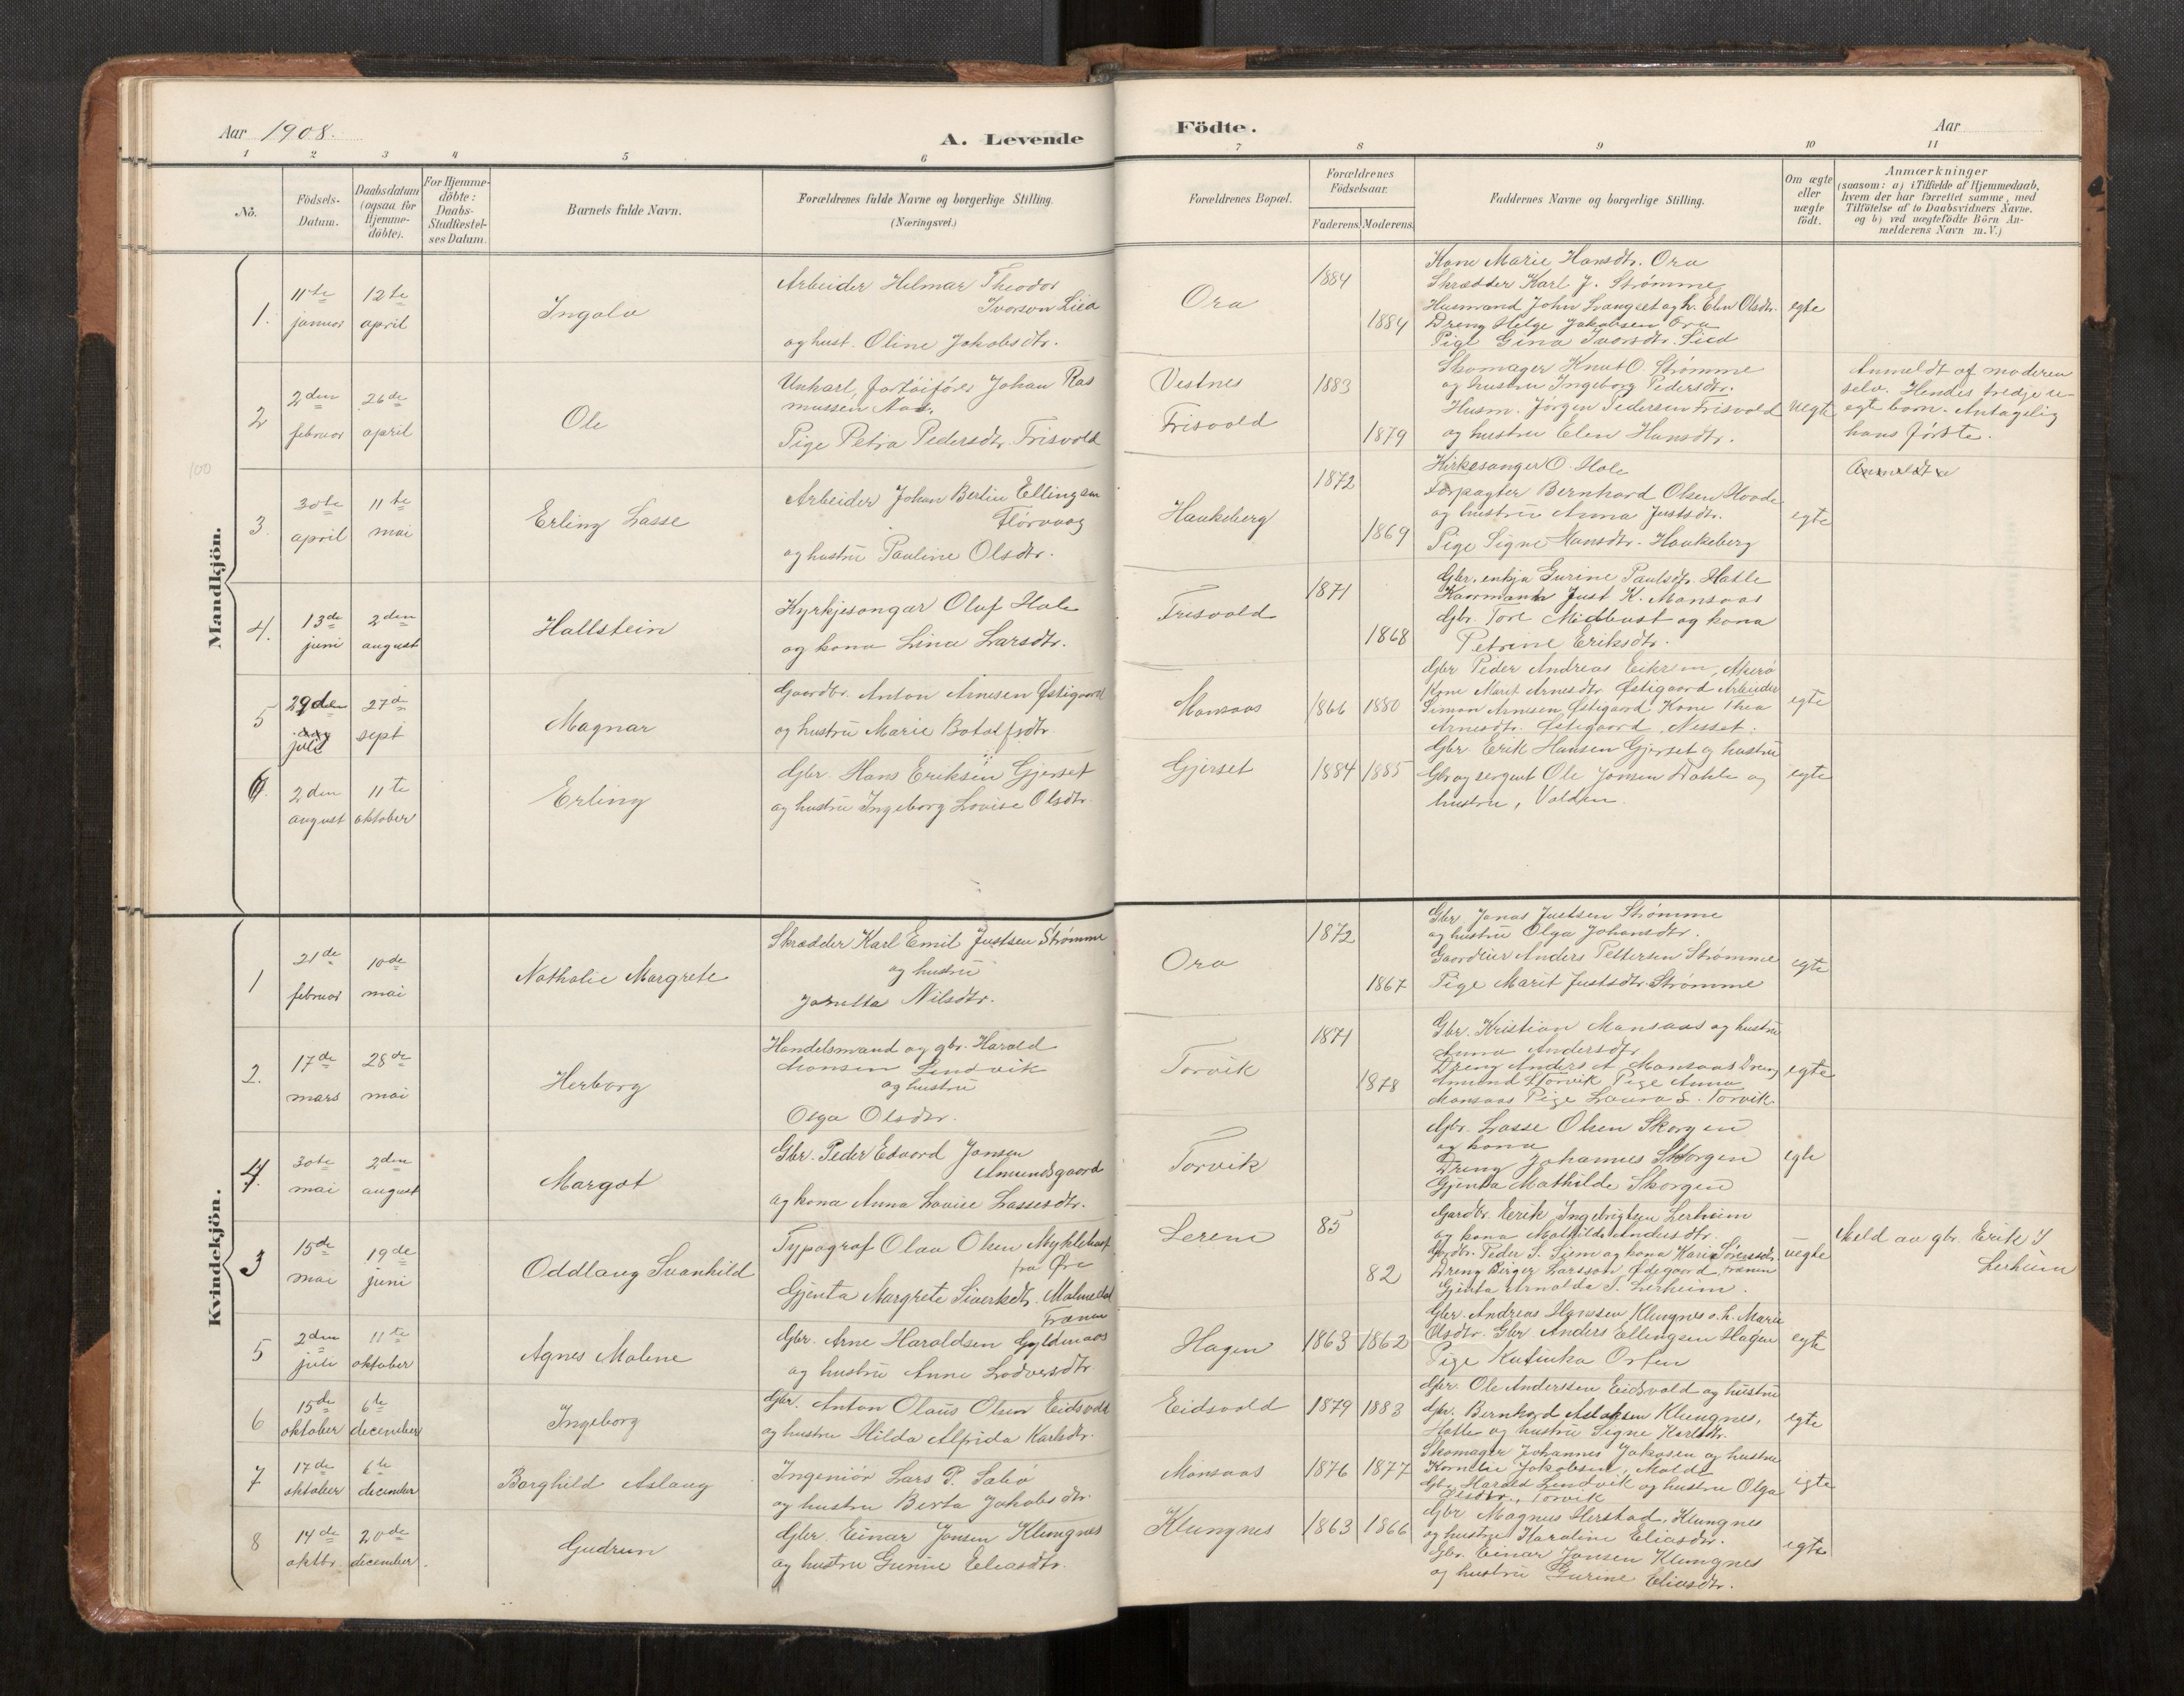 Aar 1908.
A. Levende
Födte.
Aar
1 2 3 4 5 6 7 8 9 10 11
No.
Födsels-
Datum.
Daabsdatum
(ogsaa for
Hjemme-
döbte).
For Hjemme-
döbte:
Daabs-
Stadfæstel-
ses Datum.
Barnets fulde Navn.
Forældrenes fulde Navne og borgerlige Stilling.
(Næringsvei.)
Forældrenes Bopæl.
Forældrenes
Födselsaar.
Faderens. Moderens.
Faddernes Navne og borgerlige Stilling.
Om ægte
eller
uægte
födt.
Anmærkninger
(saasom: a) i Tilfælde af Hjemmedaab,
hvem der har forrettet samme, med
Tilföielse af to Daabsvidners Navne.
og b) ved uægtefödte Börn An-
melderens Navn m.V.)
Mandkjön.
100
1.
11te
januar
12te
april
Ingolv
Arbeider Hilmar Theodor
Ivarson Lied
og hust. Oline Jakobsdtr.
Ora
1884
1884
Kone Marie Hansdtr. Ora
Skrædder Karl J. Strømme
Husmand John Langset og h. Elen Olsdtr.
Dreng Helge Jakobsen Ora
Pige Gina Ivarsdtr. Lied
egte
2
2den
februar
26de
april
Ole
Unkarl, fartøifører Johan Ras
mussen Aas.
Pige Petra Pedersdtr. Frisvold
Vestnes
Frisvold
1883
1879
Skomager Knut O. Strømme
og hustru Ingeborg Pedersdtr.
Husm. Jørgen Pedersen Frisvold
og hustru Elen Hansdtr.
Uegte
Anmeldt af moderen
selv. Hendes tredje u-
egte barn. Antagelig
hans første.
3.
30te
april
11te
mai
Erling Lasse
Arbeider Johan Bertin Ellingsen
Flørvaag
og hustru Pauline Olsdtr.
Haukeberg
1872
1869
Kirkesanger O. Hole
Forpagter Bernhard Olsen Hovde
og hustru Anna Justsdtr.
Pige Signe Hansdtr. Haukeberg
egte
Anmeldt a
4.
13de
juni
2den
august
Hallstein
Kyrkjesongar Oluf Hole
og kona Lina Larsdtr.
Frisvold
1871
1868
Gbr. enkja Gurine Paulsdtr. Hatle
Kaarmann Just K. Mansaas
Gbr. Tore Midbust og kona
Petrine Eriksdtr.
5
29de
juli
27de
sept
Magnar
Gaardbr. Anton Arnesen Østigaard
og hustru Marie Botolfsdtr.
Mansaas
1866 1880
Gbr Peder Andreas Eikrem, Akerø
Kone Marit Arnesdtr. Østigaard Arbeider
Simon Arnesen Østigaard Kone Thea
Arnesdtr. Østigaard, Nesset.
egte
6.
2den
august
11te
oktober
Erling
Gbr. Hans Eriksen Gjerset
og hustru Ingeborg Lovise Olsdtr.
Gjerset
1884 1885
Gbr. Erik Hansen Gjerset og hustru
Gbr og sergent Ole Jonsen Dahle og
hustru, Volden.
egte
Kvindekjön.
1
21de
februar
10de
mai
Nathalie Margrete
Skrædder Karl Emil Justsen Strømme
og hustru
Jonetta Nilsdtr.
Ora
1872
1867
Gbr. Jonas Justsen Strømme
og hustru Olga Johansdtr.
Anders Pettersen Strømme
Pige Marit Justsdtr. Strømme
egte
2.
17de
mars
28de
mai
Herborg
Handelsmand og gbr. Harald
Monsen Lindvik
og hustru
Olga Olsdtr.
Torvik
1871
1878
Gbr. Kristian Mansaas og hustru
Anna Andersdtr.
Dreng Anders A Mansaas Dreng
Amund S Torvik Pige Anna
Mansaas Pige Laura S. Torvik
egte
4.
30te
mai
2den
august
Margot
Gbr. Peder Edvard Jonsen
Amundsgaard
og kona Anna Lovise Lassesdtr.
Torvik
Gbr. Lasse Olsen Skorgen
og kona
Dreng Johannes Skorgen
Gjenta Mathilde Skorgen
egte
3
15de
mai
19de
juni
Oddlaug Svanhild
Typograf Olav Olsen Myklebust
fra Øre
Gjenta Margrete Sivertsdtr. Malmedal
Frænen
Lereim
85
82
Gardbr. Eerik Ingebrigtsen Lerheim
og kona Mathilde Andersdtr.
Gardbr. Peder S. Siem og kona Kari Siversdtr.
Dreng Birger Larsson Ødegaard, Frænen
Gjenta Arnolda T. Lerheim.
uegte
Meld av gbr. Erik J
Lerheim
5
2den
juli
11te
oktober
Agnes Malene
Gbr. Arne Haraldsen Gyldenaas
og hustru Anne Lodversdtr
Hagen
1863 1862
Gbr. Andreas Hansen Klungnes o. h. Marie
Olsdtr. Gbr Anders Ellingsen Hagen
Pige Kutinka Orten
egte
6
15de
oktober
6te
december
Ingeborg
Gbr. Anton Olaus Olsen Eidsvold
og hustru Hilda Alfrida Karlsdtr.
Eidsvold
1879 1883
Gbr. Ole Anderssen Eidsvold og hustru
Gbr. Bernhard Aslaksen Klungnes,
Hatle og hustru Signe Karlsdtr.
egte
7
17de
oktober
6te
december
Borghild Aslaug
Ingeniør Lars P. Sabø
og hustru Berta Jakobsdtr.
Mansaas
1876 1877
Skomager Johannes Jakobsen og hustru
Kornelie Jakobsen, Molde
Gbr. Harald Lindvik og hustru Olga
Olsdtr, Torvik
egte
8
14de
oktbr.
20de
december.
Gudrun
Gbr. Einar Jonsen Klungnes
og hustru Gurine Eliasdtr.
Klungnes
1863 1866
Gbr. Magnus Herstad, Klungnes
og hustru Karoline Eliasdtr.
Gbr. Einar Jonsen Klungnes
og hustru Gurine Eliasdtr.
egte